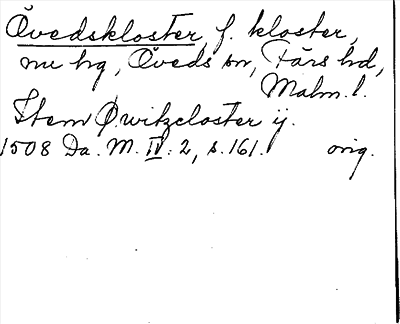 Övedskloster, f. kloster,
nu hg, Öveds sn, Färs hd,
Malm. l.
Item Øwitzcloster ij.
1508 Da. M. IV: 2, s. 161. orig.